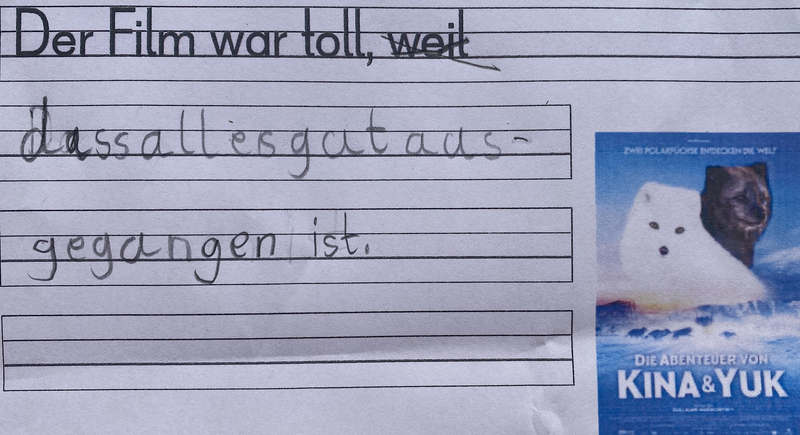 Der Film war toll, weil
dass alles gut aus-
gegangen ist.
ZWEI POLARFÜCHSE ENTDECKEN DIE WELT
DIE ABENTEUER VON
KINA & YUK